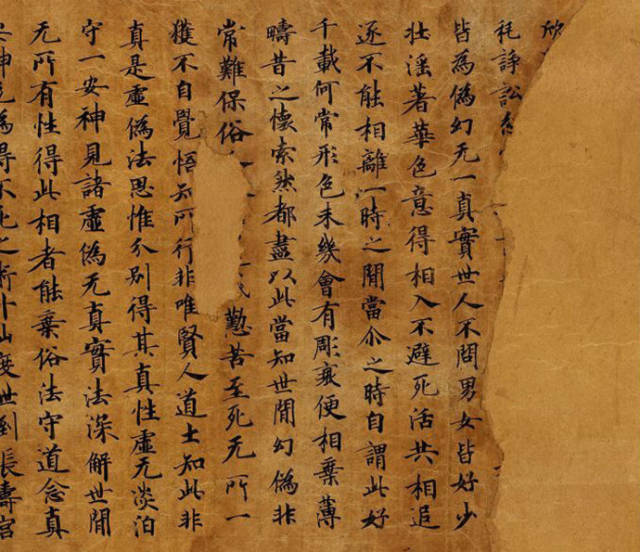 欣
秏諍訟
皆為偽幻无一真實世人不問男女皆好少
壯滛著華色意得相入不避死活共相追
逐不能相離一時之閒當尒之時自謂此好
千載何常形色未幾會有彫衰便相棄薄
疇昔之懷索然都盡以此當知世閒幻偽非
常難保俗懃苦至死无所一
獲不自覺悟知所行非唯賢人道士知此非
真是虛偽法思惟分別得其真性虛无淡泊
守一安神見諸虛偽无真實法深解世閒
无所有性得此相者能棄俗法守道念真
安神為得不死之術升仙度世到長壽宮